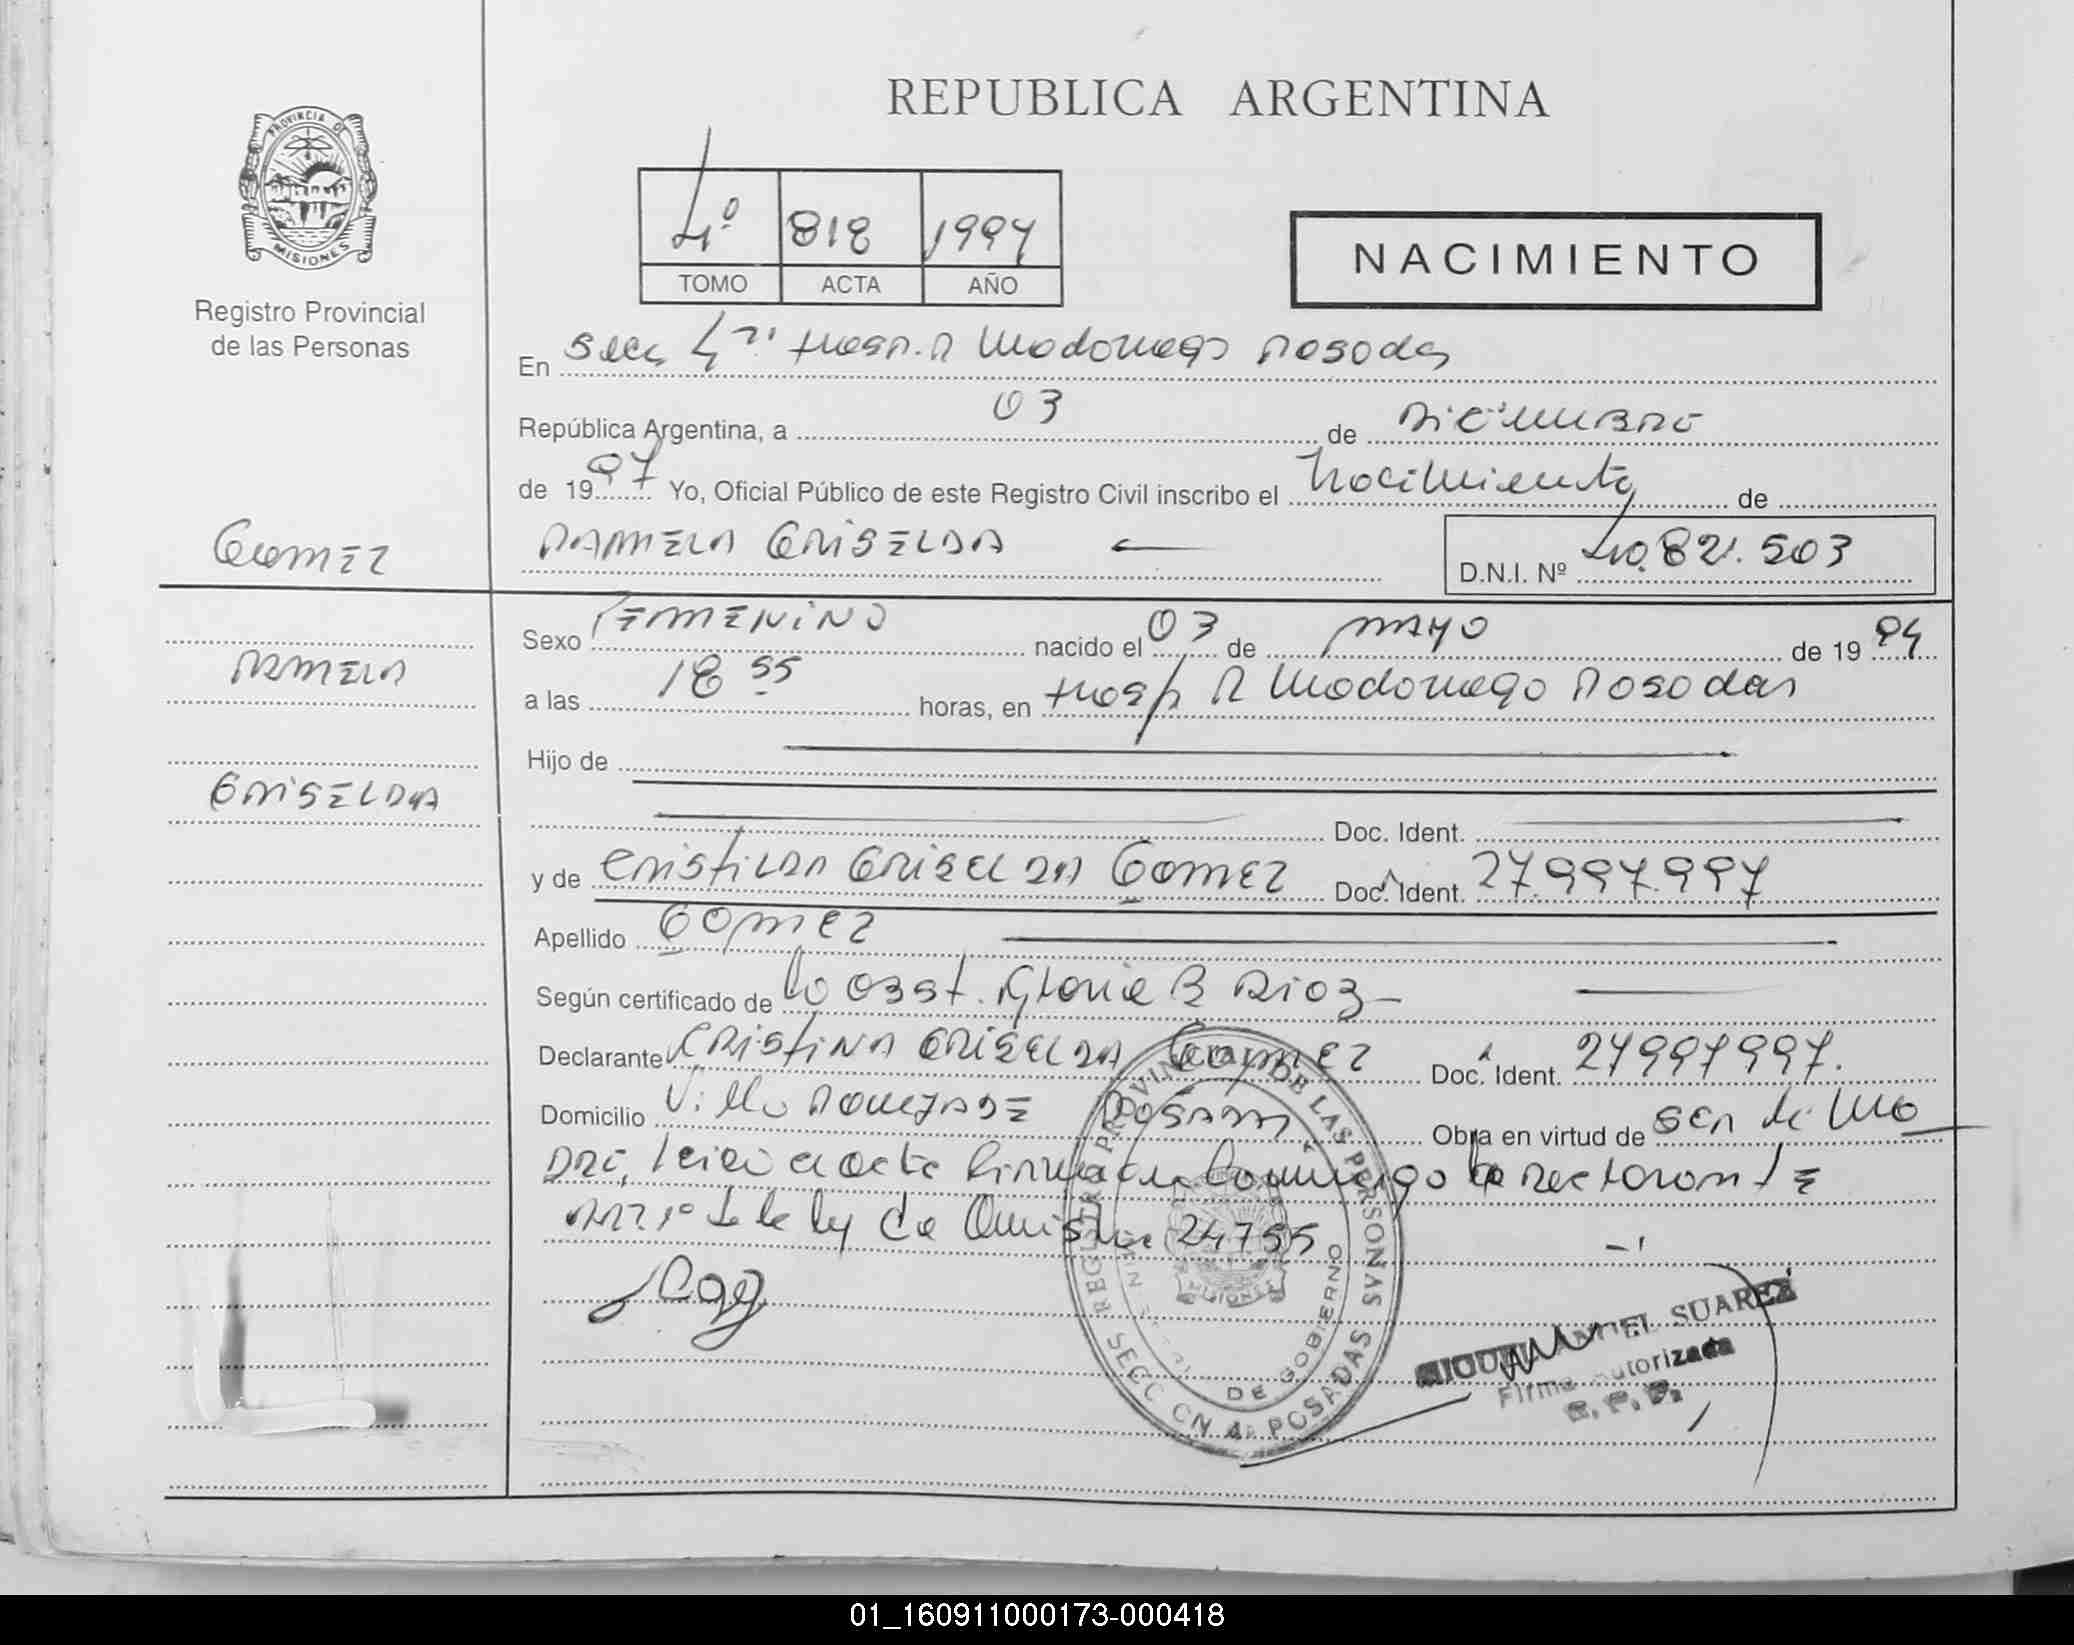 REPUBLICA ARGENTINA
PROVINCIA DE
MISIONES
Registro Provincial
de las Personas
4º 818 1997
TOMO ACTA AÑO
NACIMIENTO
En Secc 4ta Hosp. R Madariaga Posadas
República Argentina, a 03 de DiciEMBRE
de 1997 Yo, Oficial Público de este Registro Civil inscribo el Nacimiento de
GOMEZ
PAMELA GRISELDA
D.N.I. Nº 40.821.503
Sexo FEMENINO nacido el 03 de MAYO de 1994
PAMELA
a las 18 55 horas, en Hosp R Madariaga Posadas
Hijo de
GRISELDA
Doc. Ident.
y de GRISELDA GOMEZ Doc. Ident. 27.997.997
Apellido GOMEZ
Según certificado de la Obst. Gloria B Rios
Declarante CRISTINA GRISELDA GOMEZ Doc. Ident. 27997997.
Domicilio Villa POSADAS Obra en virtud de SER la MA
DRE, leida el acta
de la ley de 24755
REGISTRO PROVINCIAL DE LAS PERSONAS
DE GOBIERNO
MISIONES
SECCION 4a POSADAS
MIGUEL ANGEL SUAREZ
Firma Autorizada
R. P. P.
01_160911000173-000418